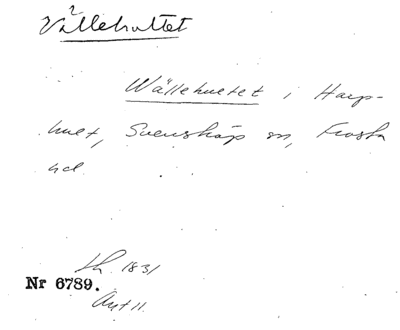 ?
Vällehultet
Wällehultet i Harp-
hult, Svensköp sn, Frosta
hd
Lh. 1831
Nr 6789.
Akt 11.